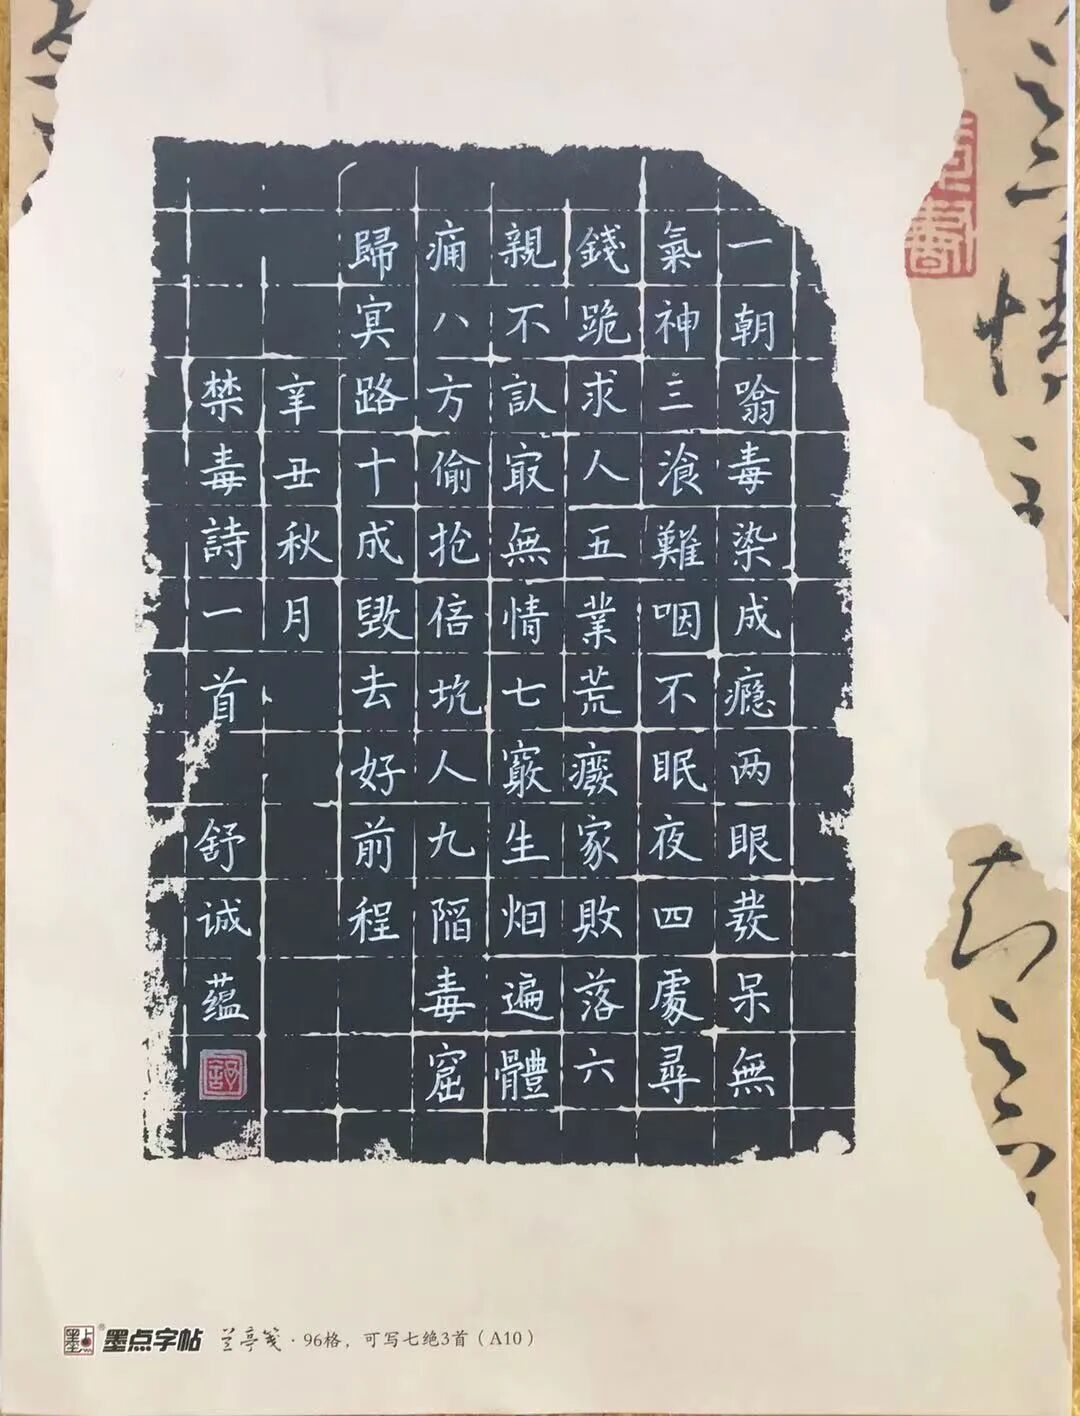 一朝噏毒染成瘾两眼發呆無
氣神三湌難咽不眠夜四處尋
錢跪求人五業荒癈家敗落六
親不認冣無情七窮生烟遍體
痛八方偷抢倍坑人九陷毒窟
歸冥路十成毀去好前程
辛丑秋月
禁毒詩一首 舒诚蕴
墨点 ® 墨点字帖 兰亭笺·96格，可写七绝3首（A10）